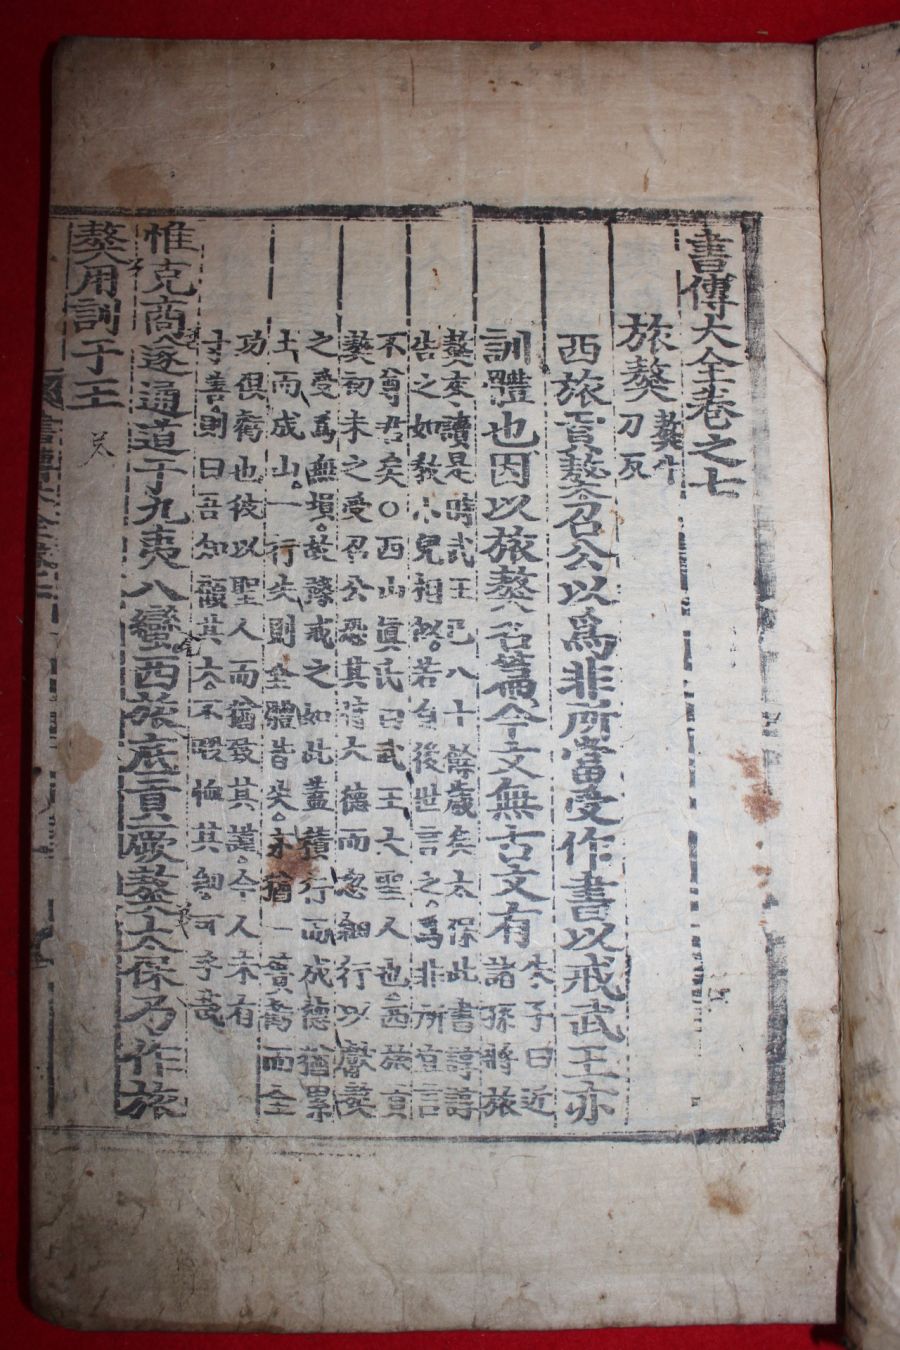 書傳大全卷之七
旅獒 獒牛
刀反
西旅貢獒召公以爲非所當受作書以戒武王亦
訓體也因以旅獒名篇今文無古文有 朱子曰近
諸孫將旅
獒來讀是時武王已八十餘歲矣太保此書諄諄
告之如教小兒相似若自後世言之爲非所宜言
不尊君矣○西山眞氏曰武王大聖人也西旅貢
獒初未之受召公恐其恃大德而忽細行以獒
之受爲無損故豫戒之如此蓋積行而成德猶累
土而成山一行失則全體皆失亦猶一簣虧而全
功俱虧也彼以聖人而猶致其謹今人未有
寸善則曰吾知顧其大不暇恤其細可乎哉
惟克商遂通道于九夷八蠻西旅底貢厥獒太保乃作旅
獒用訓于王